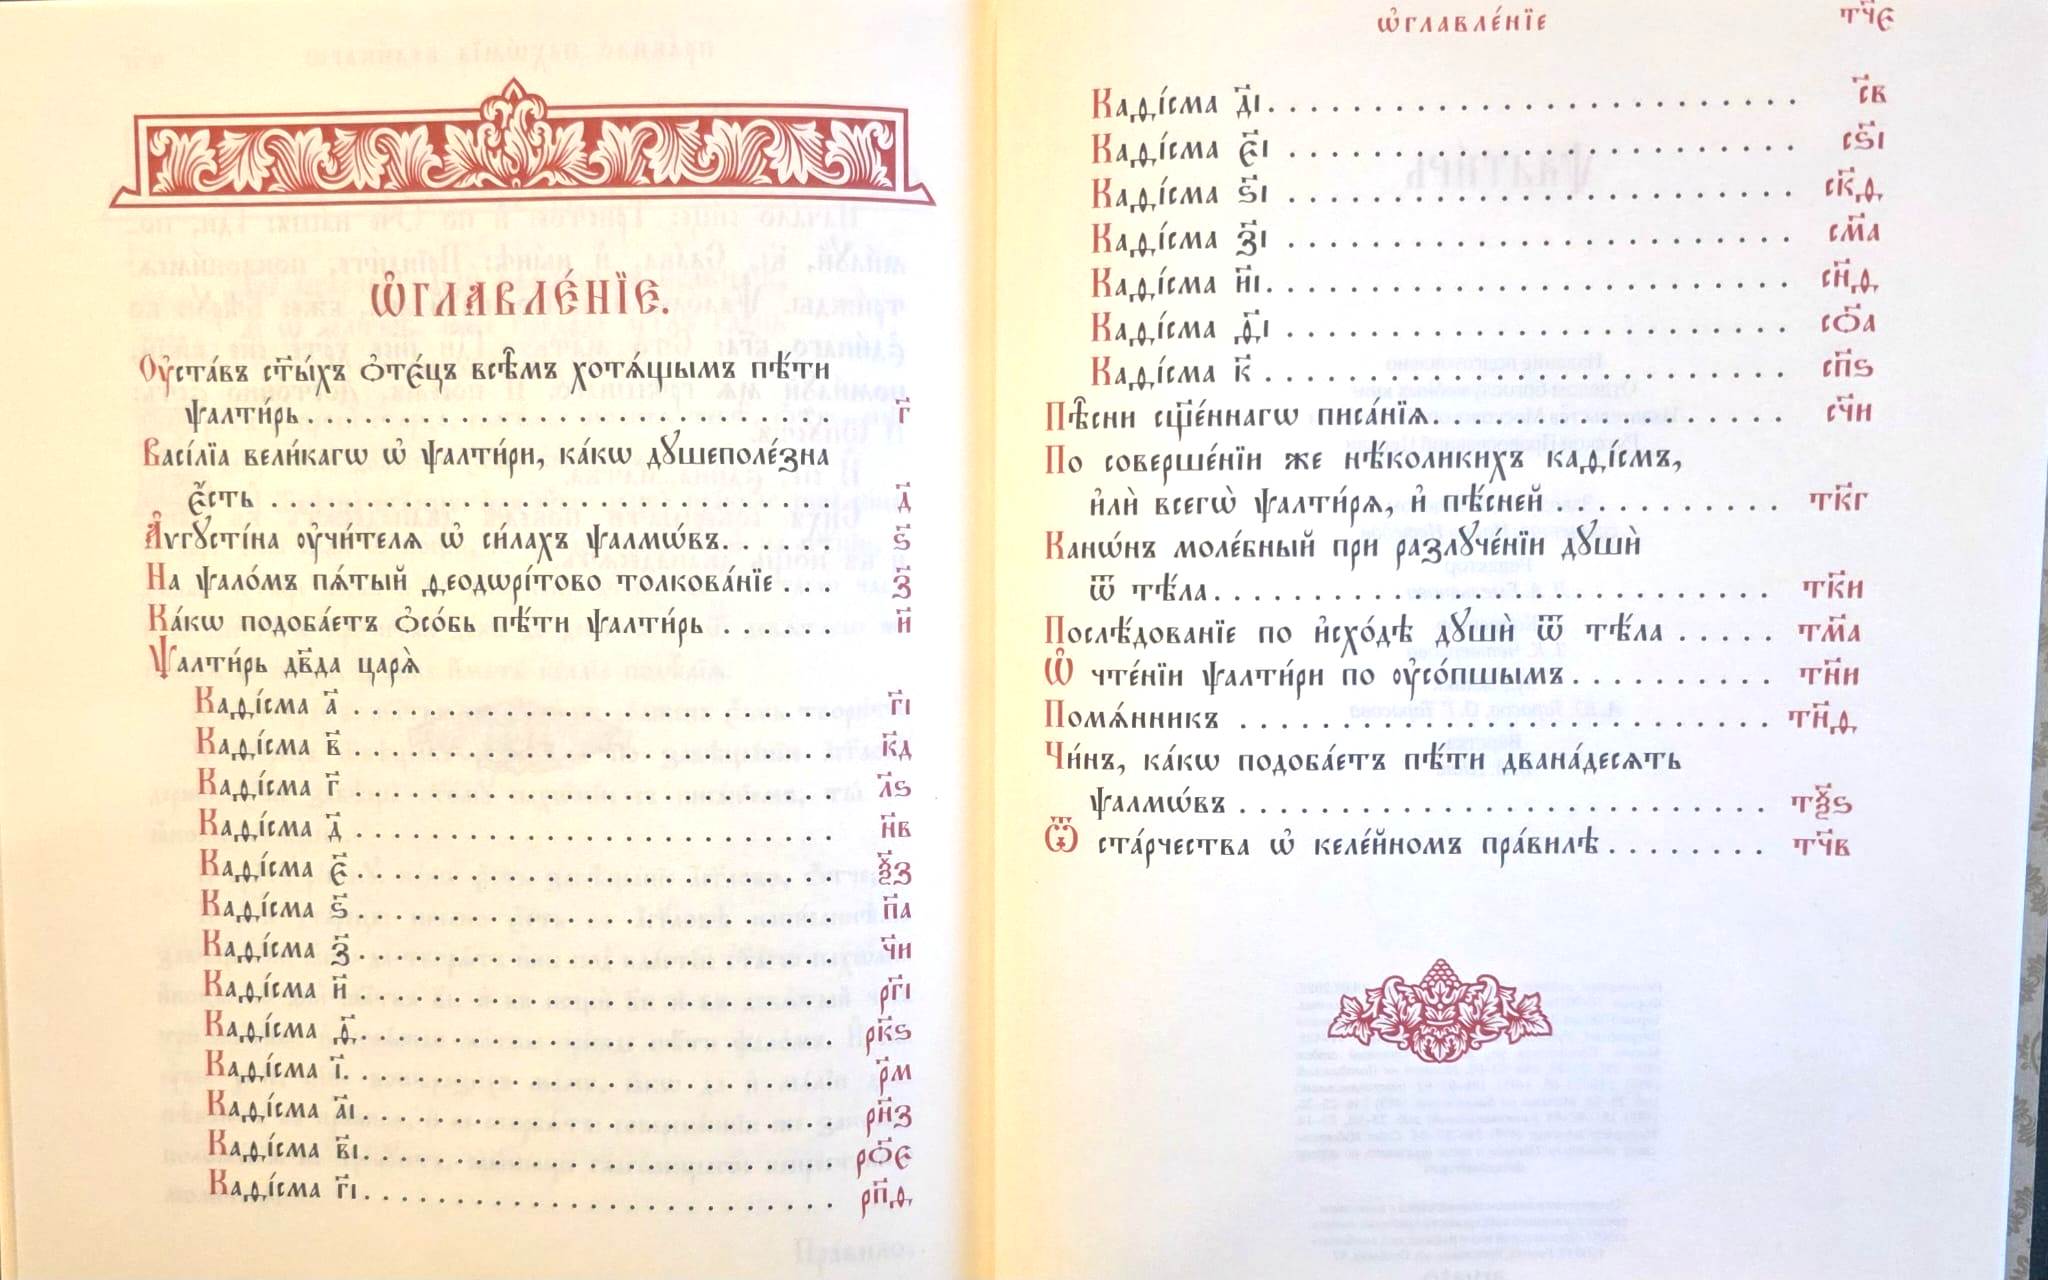 Ѡ҆главле́нїе.
Оу҆ста́въ ст҃ы́хъ ѻ҆тє́цъ всѣ̑мъ хотѧ́щымъ пѣ́ти
ѱалти́рь. г҃
Васі́лїа вели́кагѡ ѡ҆ ѱалти́ри, ка́кѡ дꙋшеполе́зна
є҆́сть д҃
А҆ѵгꙋсті́на оу҆чи́телѧ ѡ҆ си́лахъ ѱалмѡ́въ. ѕ҃
На ѱало́мъ пѧ́тый ѳеодѡрі́тово толкова́нїе з҃
Ка́кѡ подоба́етъ ѻ҆со́бь пѣ́ти ѱалти́рь и҃
Ѱалти́рь дв҃да царѧ̀
Каѳі́сма а҃ г҃і
Каѳі́сма в҃ к҃д
Каѳі́сма г҃ л҃ѕ
Каѳі́сма д҃ н҃в
Каѳі́сма є҃ ѯ҃з
Каѳі́сма ѕ҃ п҃а
Каѳі́сма з҃ ч҃и
Каѳі́сма и҃ рг҃і
Каѳі́сма ѳ҃ рк҃ѕ
Каѳі́сма і҃ р҃м
Каѳі́сма а҃і рн҃з
Каѳі́сма в҃і рѻ҃є
Каѳі́сма г҃і рп҃ѳ
ѡ҆главле́нїе тч҃є
Каѳі́сма д҃і с҃в
Каѳі́сма є҃і сѕ҃і
Каѳі́сма ѕ҃і ск҃ѳ
Каѳі́сма з҃і см҃а
Каѳі́сма и҃і сн҃ѳ
Каѳі́сма ѳ҃і сѻ҃а
Каѳі́сма к҃ сп҃ѕ
Пѣ̑сни сщ҃е́ннагѡ писа́нїѧ сч҃и
По соверше́нїи же нѣ́коликихъ каѳі́смъ,
и҆лѝ всегѡ̀ ѱалти́рѧ, и҆ пѣ́сней тк҃г
Канѡ́нъ моле́бный при разлꙋче́нїи дꙋшѝ
ѿ тѣ́ла тк҃и
Послѣ́дованїе по и҆схо́дѣ дꙋшѝ ѿ тѣ́ла тм҃а
Ѡ҆ чте́нїи ѱалти́ри по оу҆со́пшымъ тн҃и
Помѧ́нникъ тн҃ѳ
Чи́нъ, ка́кѡ подоба́етъ пѣ́ти двана́десѧть
ѱалмѡ́въ тѯ҃ѕ
Ѿ ста́рчества ѡ҆ келе́йномъ пра́вилѣ тч҃в